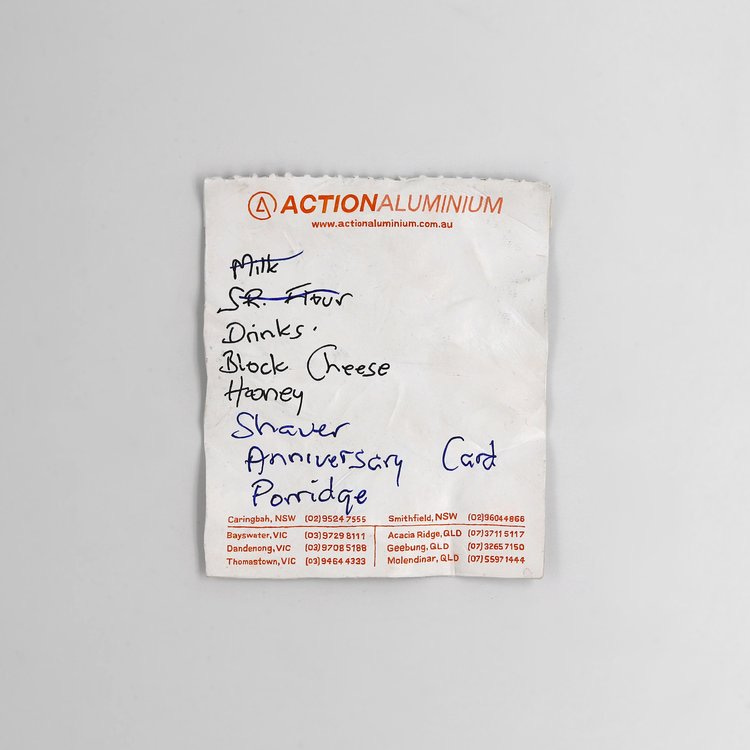 ACTIONALUMINIUM
www.actionaluminium.com.au
Milk
S.R. Flour
Drinks.
Block Cheese
Hooney
Shaver
Anniversary Card
Porridge
Caringbah, NSW (02) 9524 7555 Smithfield, NSW (02) 9604 4866
Bayswater, VIC (03) 9729 8111 Acacia Ridge, QLD (07) 3711 5117
Dandenong, VIC (03) 9708 5188 Geebung, QLD (07) 3265 7150
Thomastown, VIC (03) 9464 4333 Molendinar, QLD (07) 5597 1444